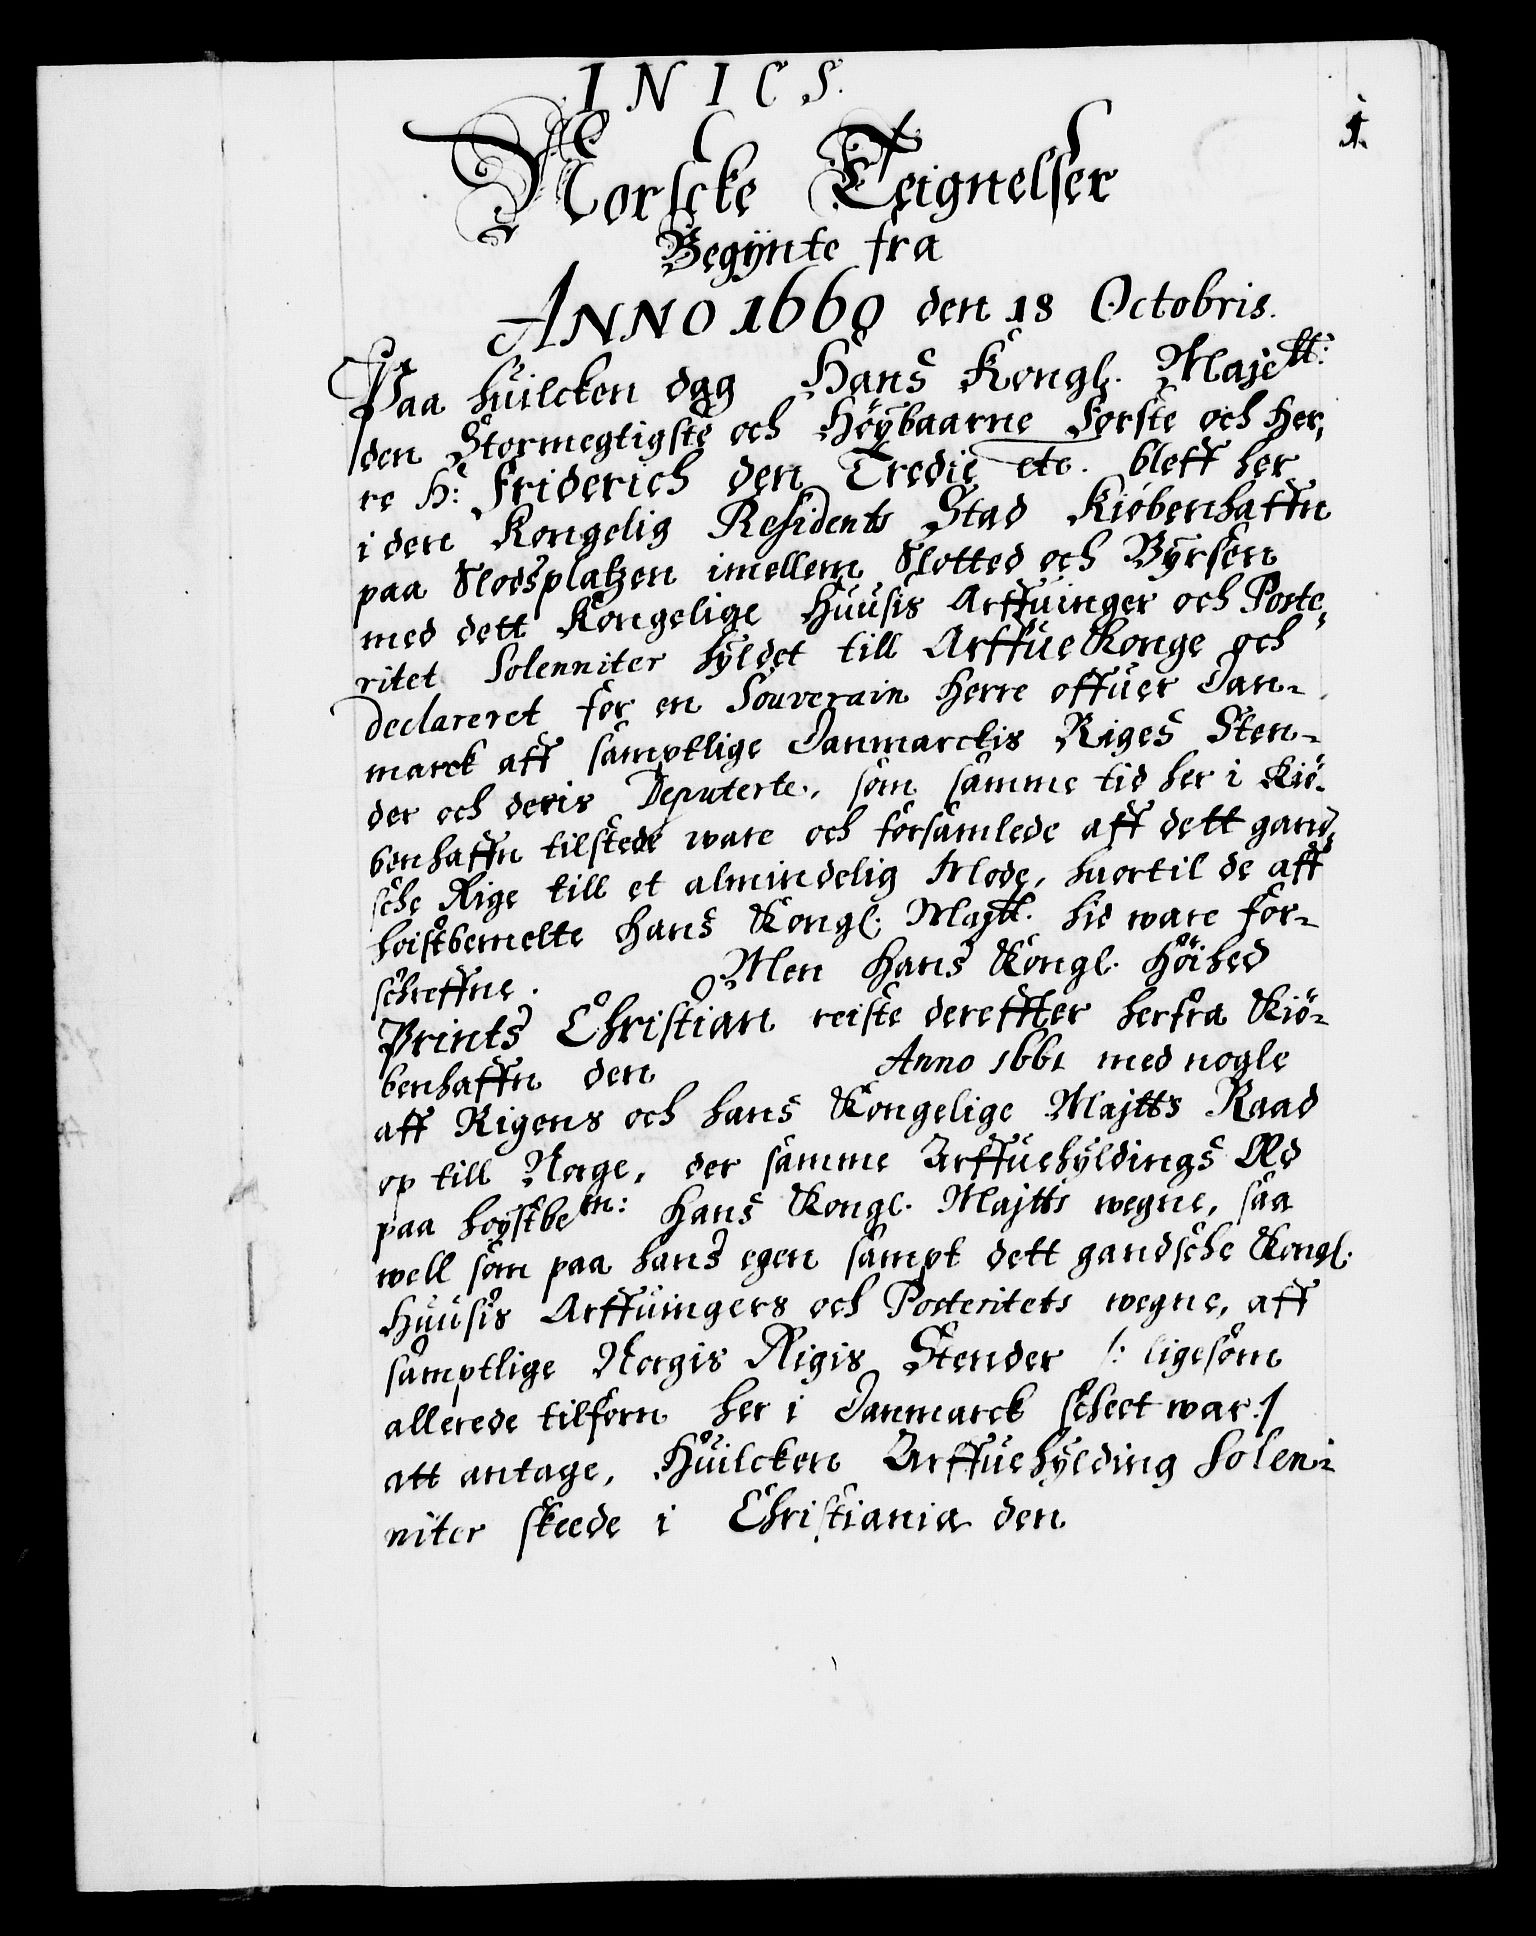 I N I C S.
1.
Norscke Teignelser
Begÿnte fra
ANNO 1660 den 18 Octobris.
Paa huilcken dag Hans Kongl. Majestt:
den Stormegtigste och Höÿbaarne Förste och Her,
re H: Friderich den Tredie etc. bleff her
i den Kongelig Residents Stad Kiöbenhaffn
paa Slodsplatzen imellem Slotted och Bÿrsen
med dett Kongelige Huusis Arffuinger och Poste,
ritet Solenniter hÿldet till Arffue Konge och
declareret for en Souverain Herre offuer Dan-
marck aff samptlige Danmarckis Riges Sten-
der och deris Deputerte, som samme tid her i Kiö-
benhaffn tilstede ware och forsamlede aff dett gand,
sche Rige till et almindelig Mode, huortil de aff
hoistbemelte Hans Kongl. Majtt. hid ware for-
schreffne. Men Hans Kongl. Höihed
Prints Christian reiste dereffter herfra Kiö-
benhaffn den Anno 1661 med nogle
aff Rigens och hans Kongelige Majtts Raad
op till Norge, der samme Arffuehÿldings Æd
paa hoÿstbem: Hans Kongl. Majtts wegne, saa
well som paa hans egen sampt dett gandsche Kongl.
Huusis Arffuingers och Posteritets wegne, aff
samptlige Norgis Rigis Stender /: ligesom
allerede tilforn her i Danmarck scheet war :/
att antage, Huilcken Arffuehÿlding Solen-
niter skeede i Christiania den